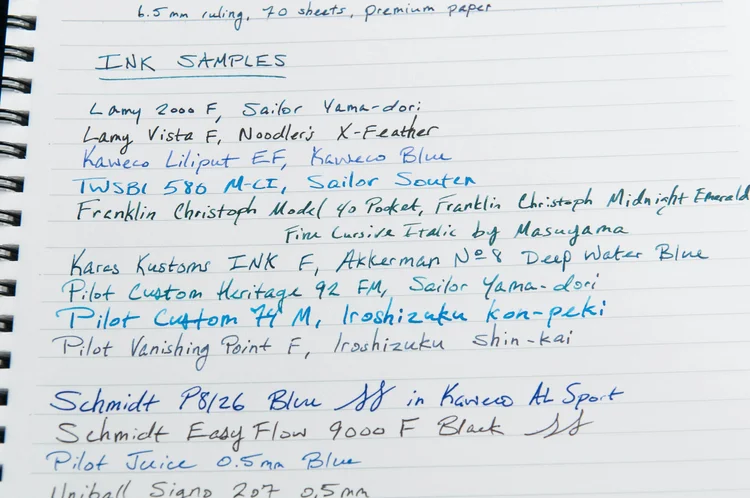 6.5mm ruling, 70 sheets, premium paper
INK SAMPLES
Lamy 2000 F, Sailor Yama-dori
Lamy Vista F, Noodler's X-Feather
Kaweco Liliput EF, Kaweco Blue
TWSBI 580 M-CI, Sailor Souten
Franklin Christoph Model 40 Pocket, Franklin Christoph Midnight Emerald
Fine Cursive Italic by Masuyama
Karas Kustoms INK F, Akkerman Nº8 Deep Water Blue
Pilot Custom Heritage 92 FM, Sailor Yama-dori
Pilot Custom 74 M, Iroshizuku kon-peki
Pilot Vanishing Point F, Iroshizuku shin-kai
Schmidt P8126 Blue in Kaweco AL Sport
Schmidt Easy Flow 9000 F Black
Pilot Juice 0.5mm Blue
Uniball Signo 207 0.5mm